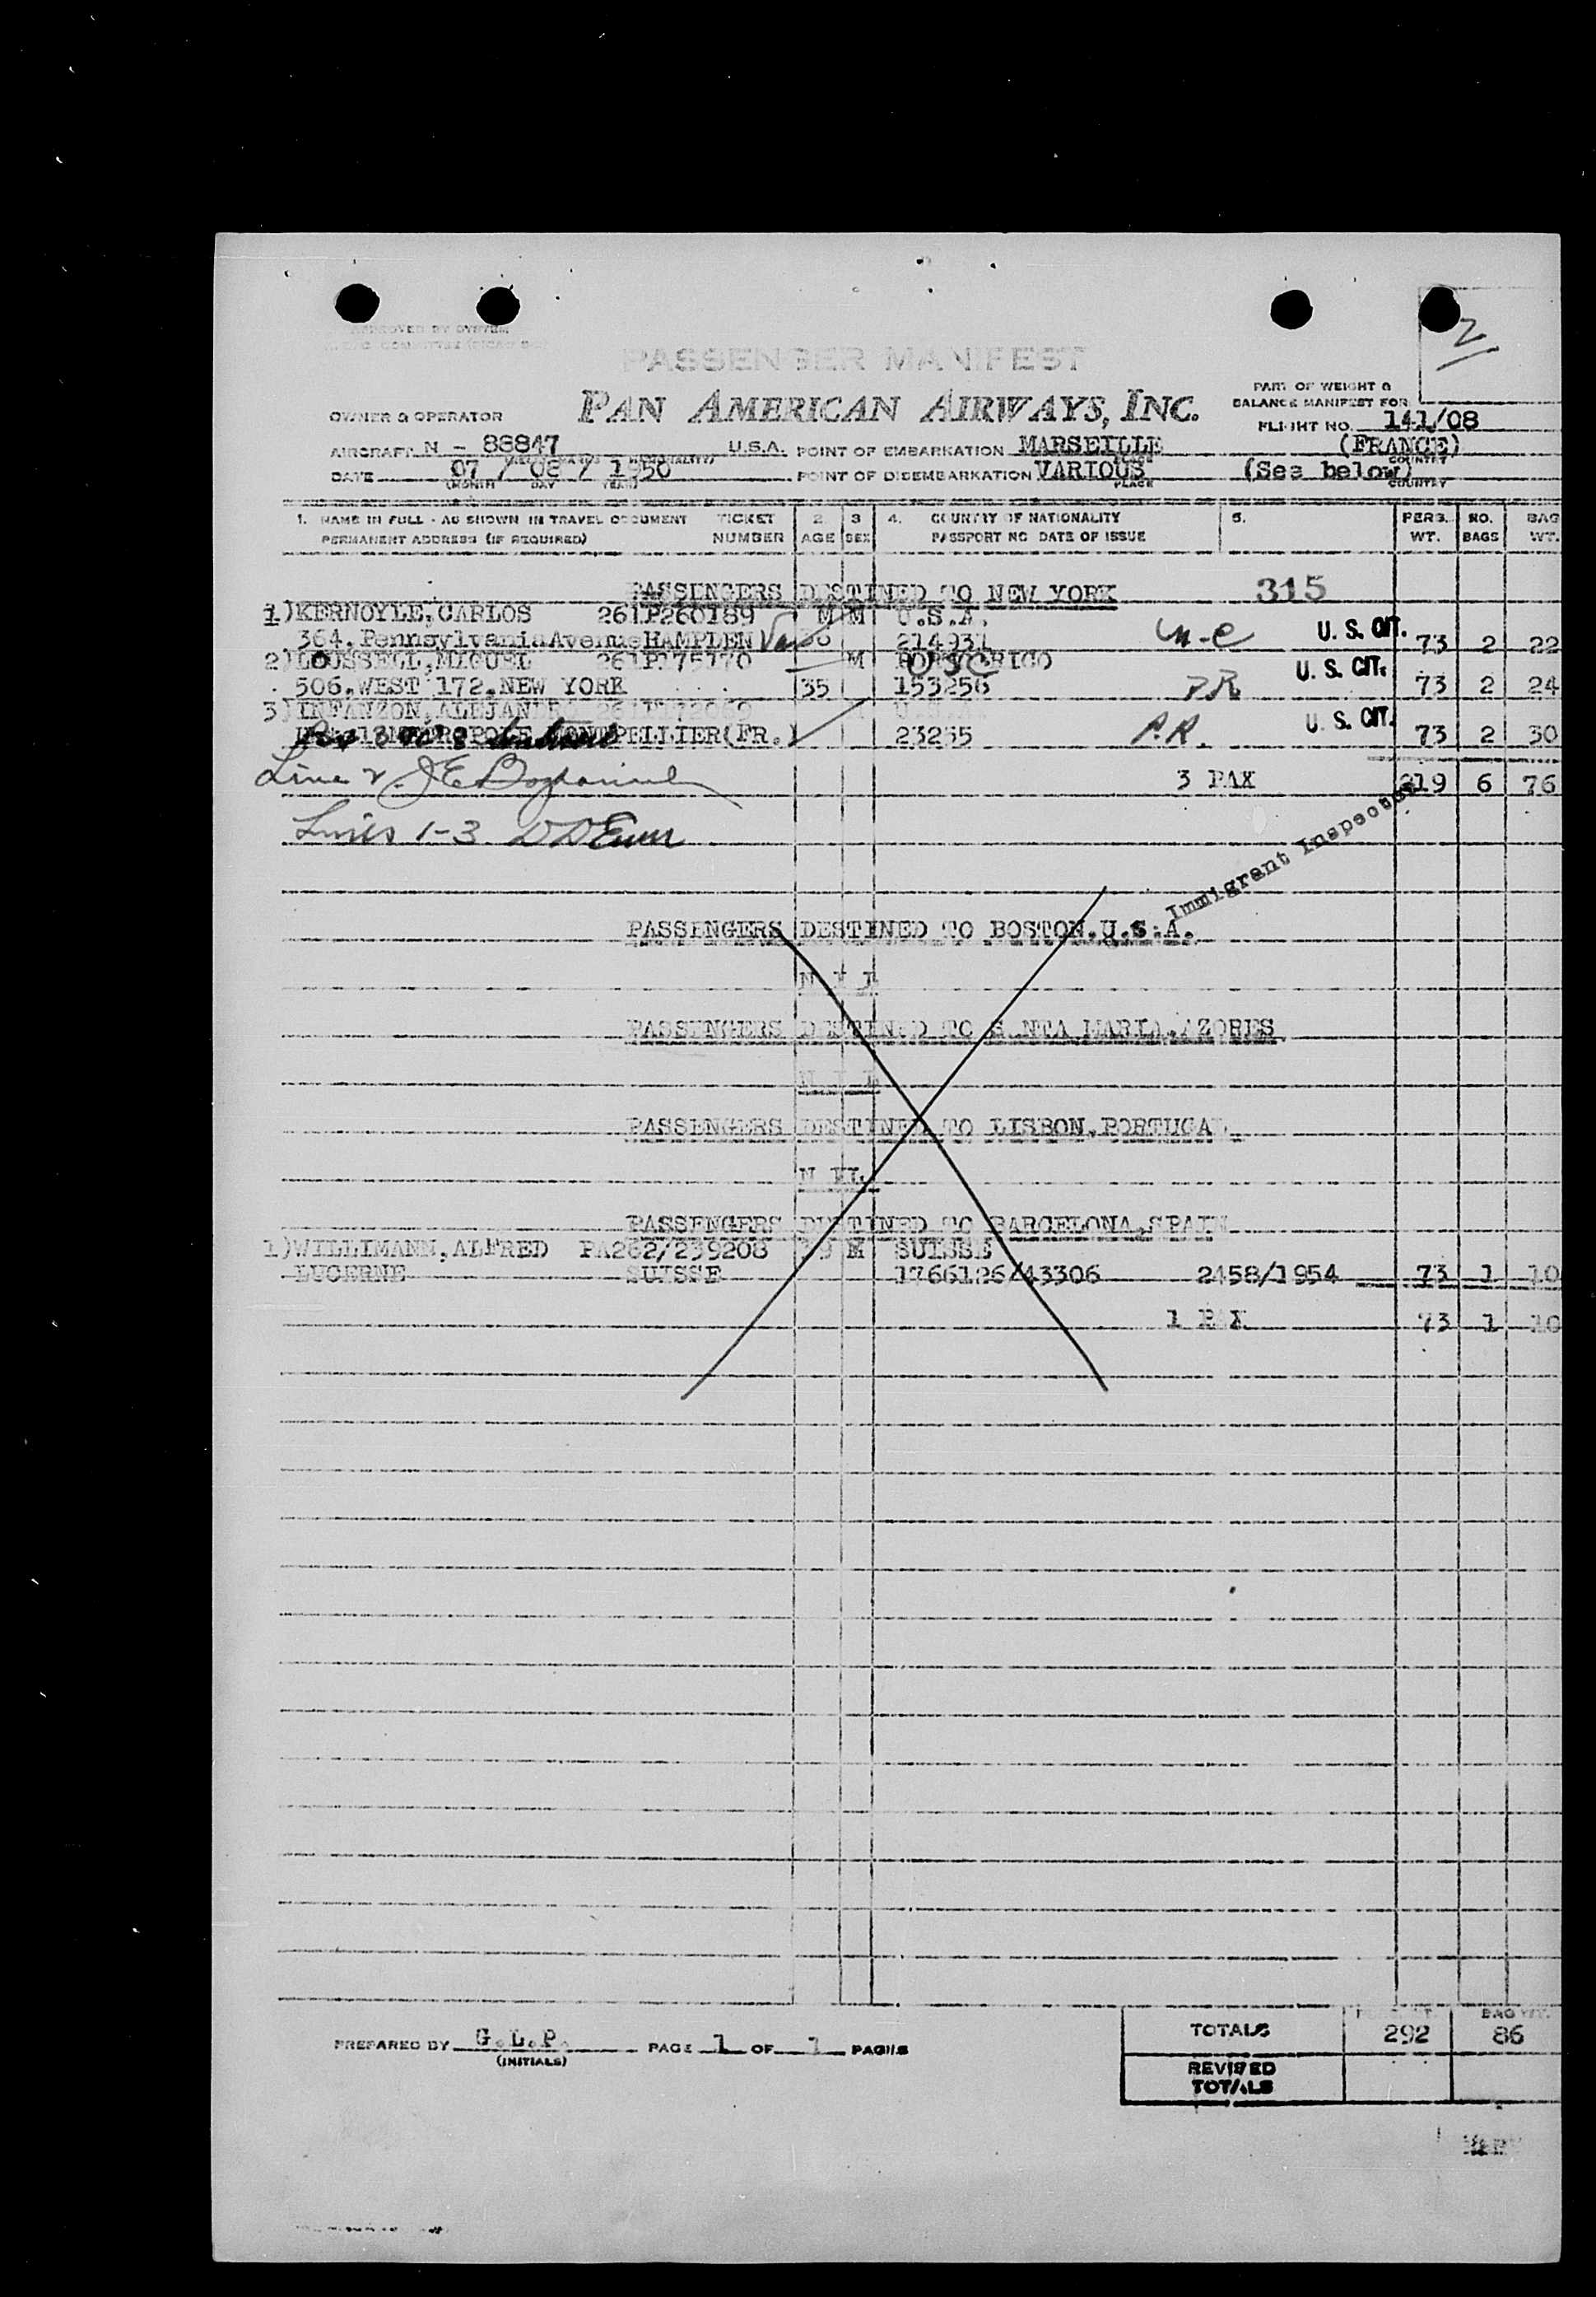 PASSENGER MANIFEST
PAN AMERICAN AIRWAYS, INC.
PART OF WEIGHT &
BALANCE MANIFEST FOR
OWNER & OPERATOR
FLIGHT NO. 141/08
AIRCRAFT N - 88847 U.S.A. POINT OF EMBARKATION MARSEILLE (FRANCE)
DATE 07 / 08 / 1950 POINT OF DISEMBARKATION VARIOUS (See below)
(MONTH) DAY (YEAR) PLACE COUNTRY
1. NAME IN FULL - AS SHOWN IN TRAVEL DOCUMENT TICKET 2. 3 4. COUNTRY OF NATIONALITY 5. PERS. NO. BAG
PERMANENT ADDRESS (IF REQUIRED) NUMBER AGE SEX PASSPORT NO DATE OF ISSUE WT. BAGS WT.
PASSENGERS DESTINED TO NEW YORK 315
1)KERNOYLE,CARLOS 261P260189 M M U.S.A.
364.Pennsylvania Avenue HAMPLEN 214931 U. S. CIT. 73 2 22
2) MIGUEL M
506.WEST 172.NEW YORK 35 153256 P.R. U. S. CIT. 73 2 24
3)INFANZON,
MONTPELLIER(FR.) 23255 P.R. U. S. CIT. 73 2 30
Line 2. 3 PAX 219 6 76
Lines 1-3
Immigrant Inspector
PASSENGERS DESTINED TO BOSTON.U.S.A.
N I L
PASSENGERS DESTINED TO SANTA MARIA.AZORES
N I L
PASSENGERS DESTINED TO LISBON,PORTUGAL.
N I L
PASSENGERS DESTINED TO BARCELONA,SPAIN
1)WILLIMANN,ALFRED PA262/239208 39 M SUISSE
LUCERNE SUISSE 1766126/43306 2458/1954 73 1 10
1 PAX 73 1 10
TOTALS 292 86
PREPARED BY G.L.P. PAGE 1 OF 1 PAGES
(INITIALS)
REVISED
TOTALS